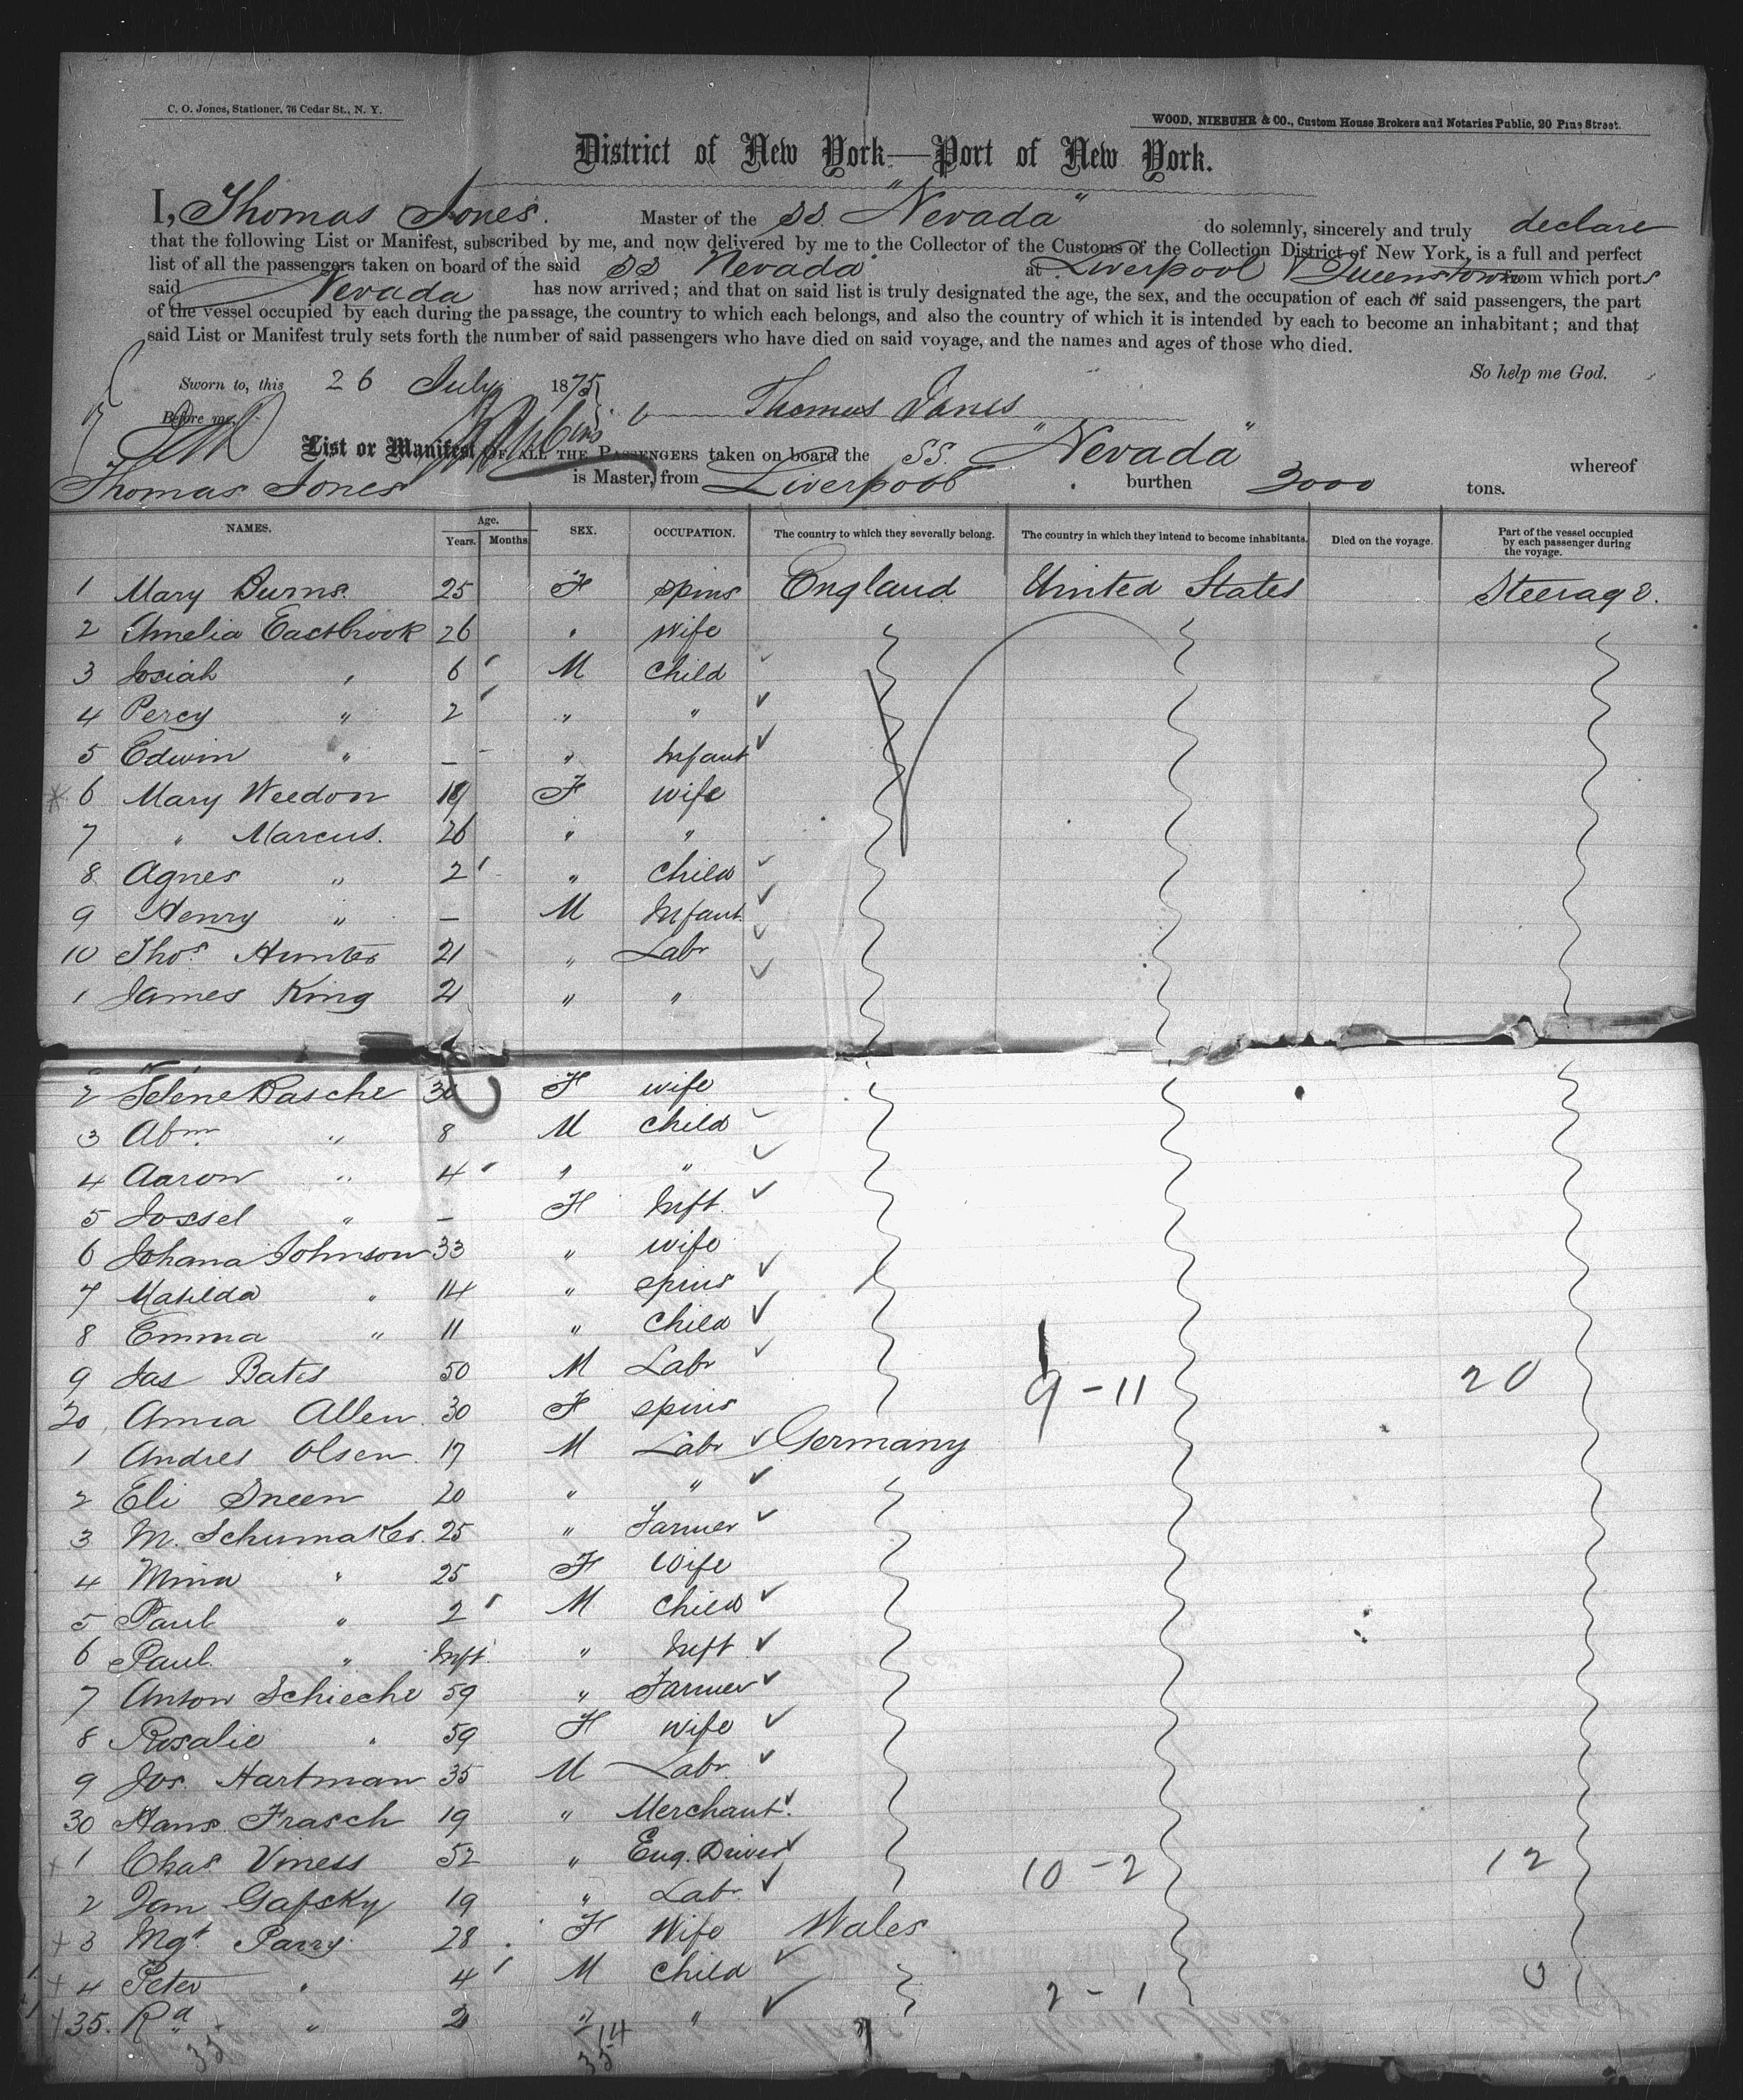 C. O. Jones, Stationer, 76 Cedar St., N. Y.
WOOD, NIEBUHR & CO., Custom House Brokers and Notaries Public, 20 Pine Street.
District of New York—Port of New York.
I, Thomas Jones. Master of the SS. "Nevada" do solemnly, sincerely and truly declare
that the following List or Manifest, subscribed by me, and now delivered by me to the Collector of the Customs of the Collection District of New York, is a full and perfect
list of all the passengers taken on board of the said SS Nevada at Liverpool & Queenstown from which ports
said Nevada has now arrived; and that on said list is truly designated the age, the sex, and the occupation of each of said passengers, the part
of the vessel occupied by each during the passage, the country to which each belongs, and also the country of which it is intended by each to become an inhabitant; and that
said List or Manifest truly sets forth the number of said passengers who have died on said voyage, and the names and ages of those who died.
So help me God.
Sworn to, this 26 July 1875
Thomas Jones
Before me,
List or Manifest OF ALL THE PASSENGERS taken on board the SS. "Nevada" whereof
Thomas Jones is Master, from Liverpool burthen 3000 tons.
NAMES. Age. Years. Months. SEX. OCCUPATION. The country to which they severally belong. The country in which they intend to become inhabitants. Died on the voyage. Part of the vessel occupied by each passenger during the voyage.
1 Mary Burns. 25 F spins England United States Steerage.
2 Amelia Eastbrook 26 " wife
3 Josiah " 6 M Child
4 Percy " 2 " "
5 Edwin " — " Infant
6 Mary Weedon 19 F wife
7 " Marcus. 26 " "
8 Agnes " 2 " Child
9 Henry " — M Infant
10 Thos. Hunter 21 " Labr
1 James King 21 " "
2 Selene Rasche 30 F wife
3 Abm. " 8 M Child
4 Aaron " 4 " "
5 Jossel " — F Inft.
6 Johana Johnson 33 " wife
7 Matilda " 14 " spins
8 Emma " 11 " Child
9 Jas Bates 50 M Labr
9 - 11 20
20 Anna Allen. 30 F spins
1 Andres Olsen. 17 M Labr Germany
2 Eli Sneen 20 " "
3 M. Schumaker. 25 " Farmer
4 Mina " 25 F Wife
5 Paul " 2 M Child
6 Paul. " Inft. " Inft
7 Anton Schieche 59 " Farmer
8 Rosalie " 59 F Wife
9 Jos. Hartman 35 M Labr.
30 Hans Frasch 19 " Merchant.
1 Chas. Viness 52 " Eng. Driver
10 - 2 12
2 Jam Gafsky 19 " Labr.
3 Mgt. Parry 28 F Wife Wales
4 Peter " 4 M Child
2 - 1 0
35. Rd " 2 " "
14
35